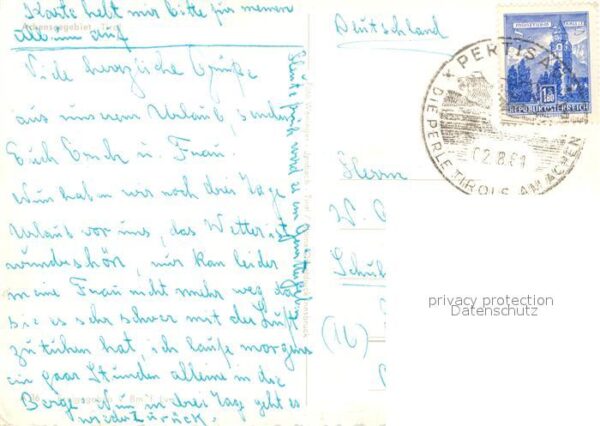 Karte hebt mir bitte für meinen
Album auf
Viele herzliche Grüße
aus unserem Urlaub, senden
Euch Erich u. Frau.
Nun haben wir noch drei Tage
Urlaub vor uns, das Wetter ist
wunderschön, nur kan leider
meine Frau nicht mehr weg, da
sie es sehr schwer mit der Luft
zu tuhen hat, ich laufe morgens
ein paar Stunden alleine in die
Berge. Nun in drei Tage geht es
wieder zurück.
Heute früh wird es ein
Deutschland
Herrn
W.
Schul
(16)
PERTISAU
DIE PERLE TIROLS AM ACHENSEE
02.8.61
1.80
REPUBLIK ÖSTERREICH
privacy protection
Datenschutz